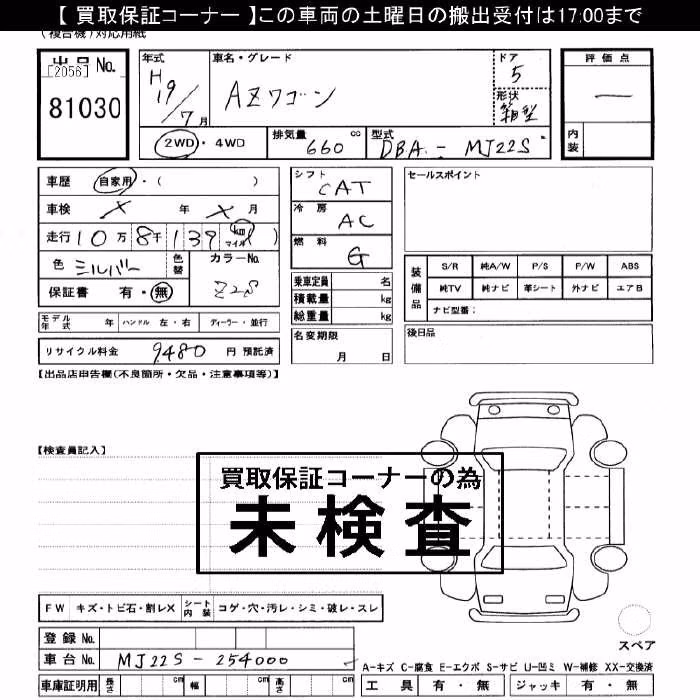 【 買取保証コーナー 】この車両の土曜日の搬出受付は17:00まで
(複合機)対応用紙
出品 No.
[2056]
81030
年式
H
19/7月
車名・グレード
AZワゴン
ドア
5
形状
箱型
評価点
—
内装
2WD・4WD
排気量 660 cc
型式 DBA - MJ22S
車歴 自家用・( )
車検 × 年 × 月
走行 10万 8千 139 (km マイル)
色 シルバー
色替
カラーNo.
Z2S
保証書 有・無
シフト CAT
冷房 AC
燃料 G
乗車定員 名
積載量 kg
総重量 kg
名変期限
月 日
セールスポイント
装備品
S/R 純A/W P/S P/W ABS
純TV 純ナビ 革シート 外ナビ エアB
ナビ型番:
後日品
モデル年式 年 ハンドル 左・右 ディーラー・並行
リサイクル料金 9480 円 預託済
【出品店申告欄(不良箇所・欠品・注意事項等)】
【検査員記入】
買取保証コーナーの為
未検査
FW キズ・トビ石・割レX シート内装 コゲ・穴・汚レ・シミ・破レ・スレ
スペア
登録 No.
車台 No. MJ22S - 254000
車庫証明用 長さ cm 幅 cm 高さ cm
A-キズ C-腐食 E-エクボ S-サビ U-凹ミ W-補修 XX-交換済
工具 有・無 ジャッキ 有・無